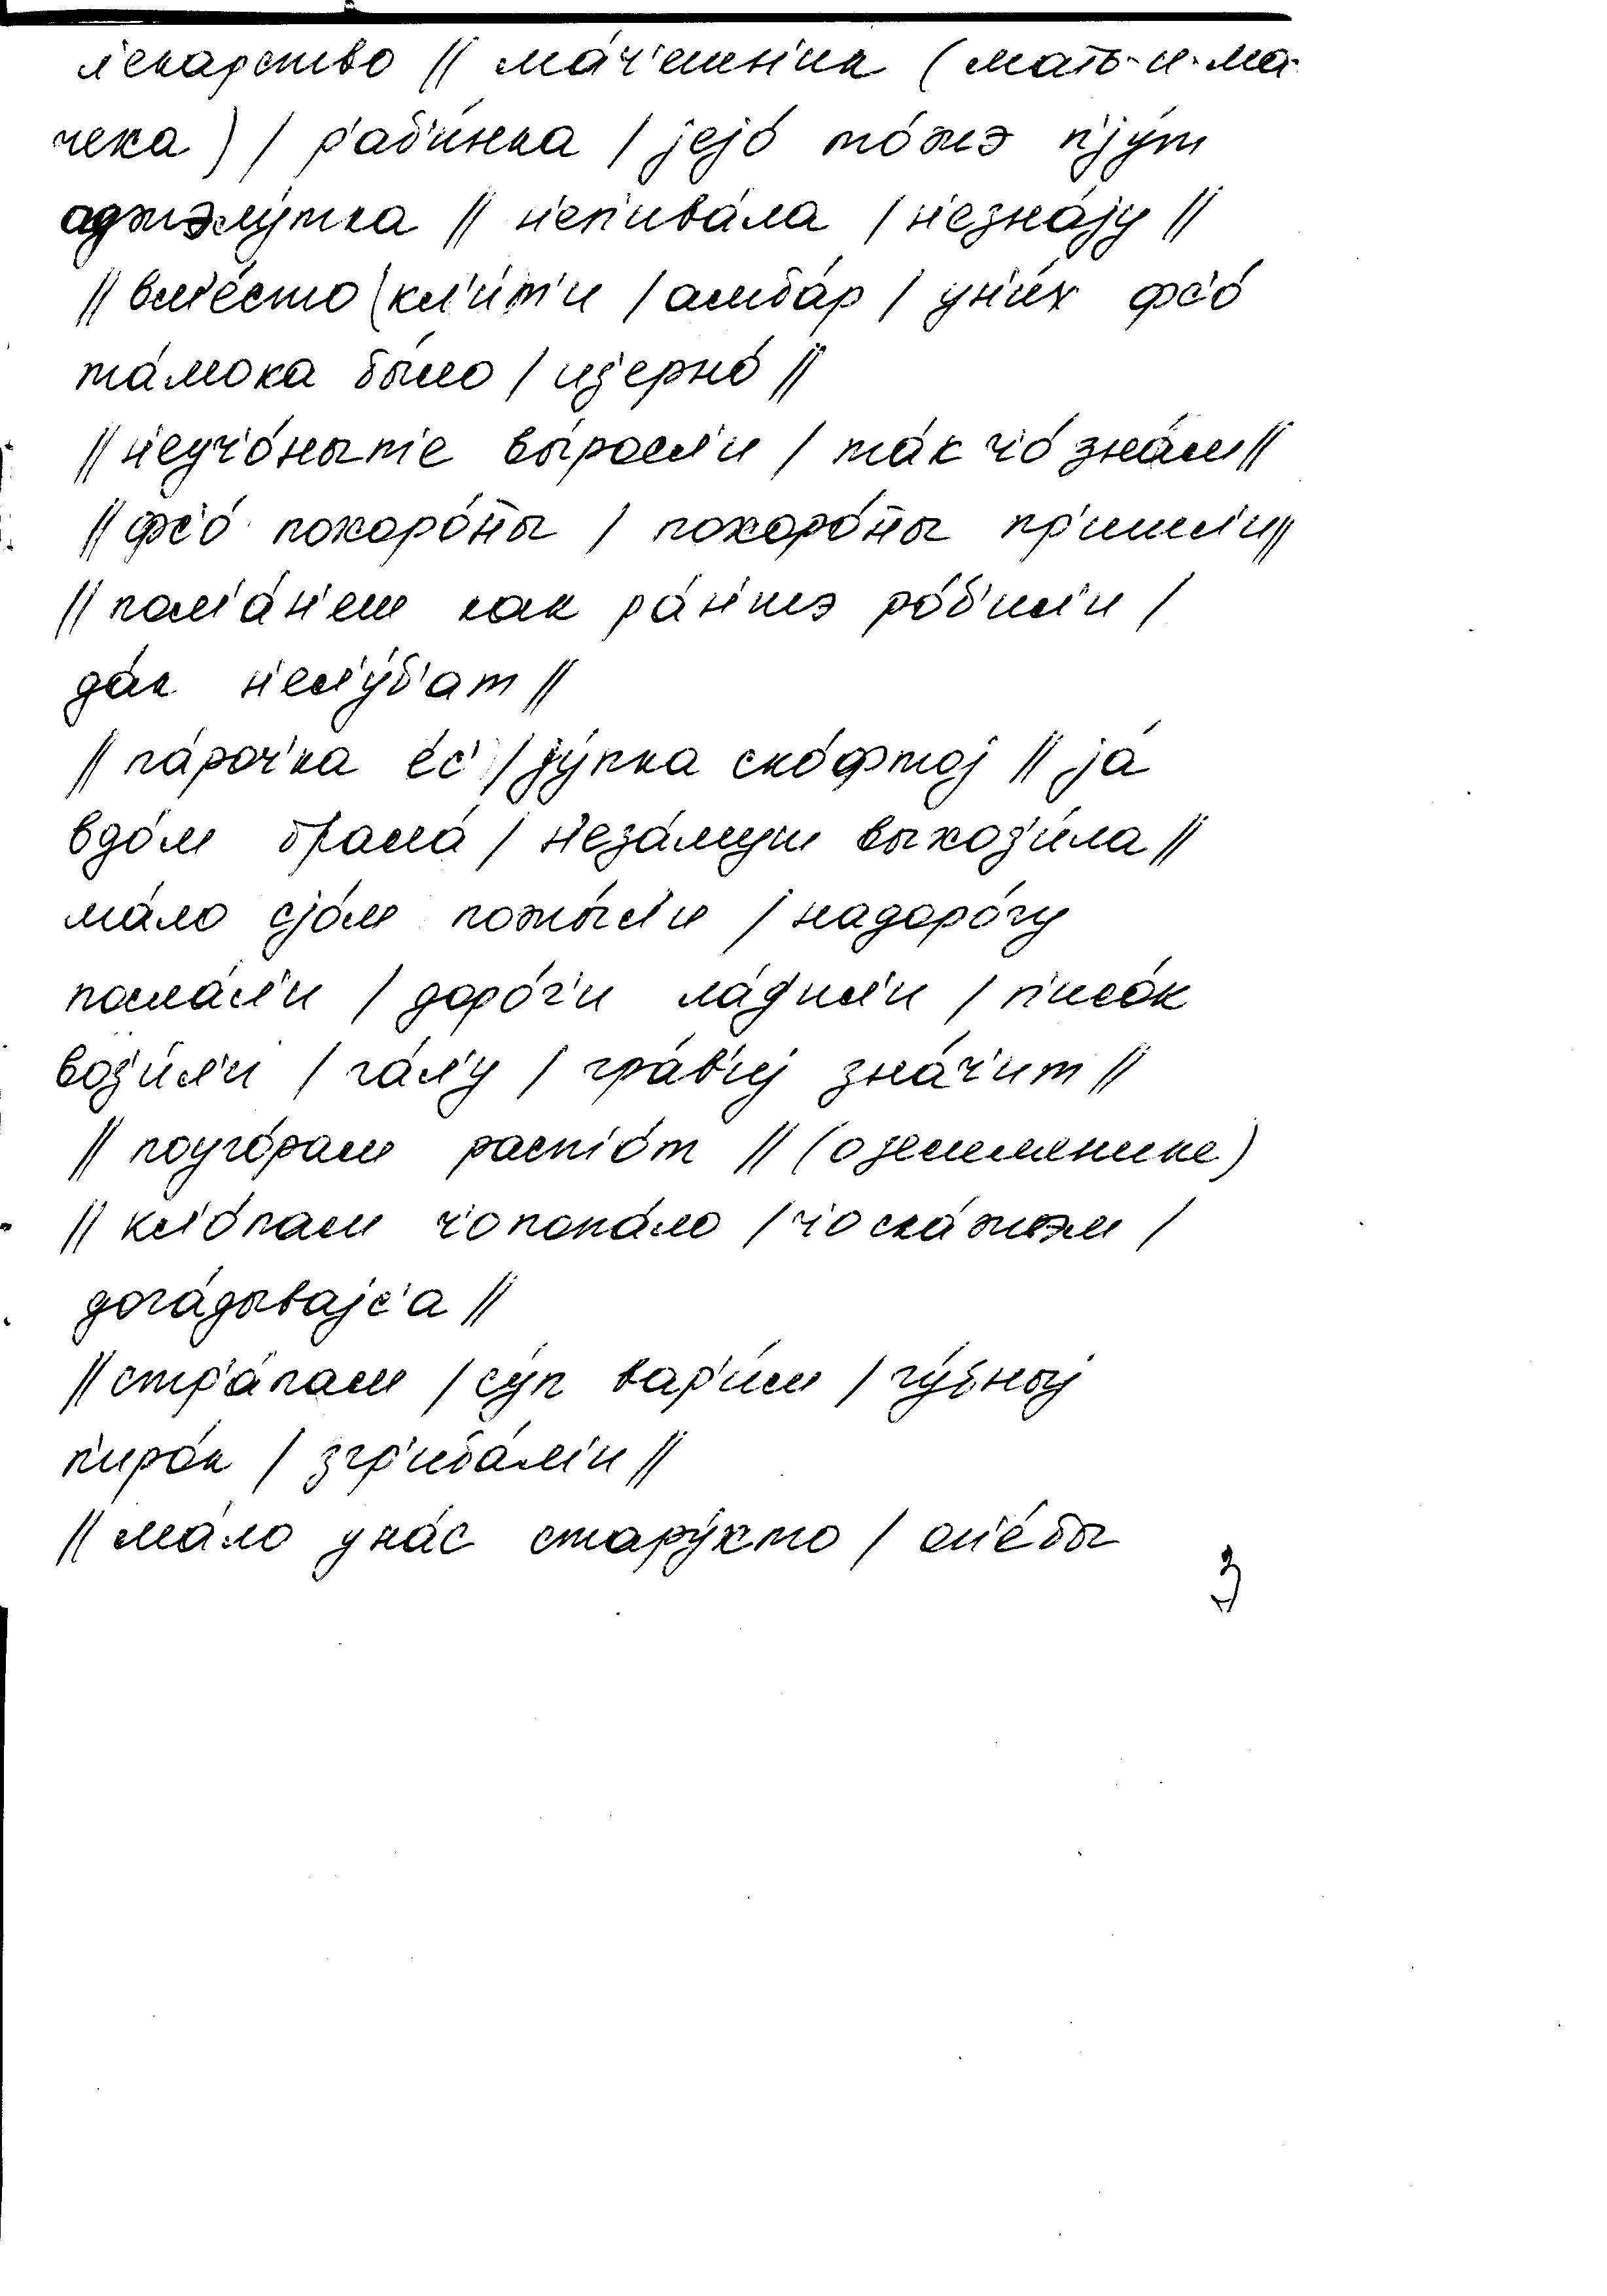 л'екарство // ма́ч'ешн'ик (мать-и-ма-
чеха) / р'аб'и́нка / jejо́ то́жэ п'jу́т
аджэлу́тка // н'еп'ива́ла / н'езна́jу //
// вм'е́сто / кл'и́т'и / амба́р / ун'и́х фс'о́
та́мока бы́ло / из'ерно́ //
// н'еуч'о́ныт'е вы́росл'и / та́к ч'о́ зна́м //
// фс'о́ похоро́ны / похоро́ны пр'ишл'и //
// пом'а́н'еш как ра́н'шэ ро́б'ил'и /
да́к н'ел'у́б'ат //
// па́роч'ка е́с' / jу́пка ско́фтоj // jа́
вдо́м брала́ / н'еза́муш выход'и́ла //
ма́ло сjо́м пожы́л'и / надоро́гу
посла́л'и / доро́г'и ла́д'ил'и / п'исо́к
воз'и́л'и / га́л'у / гра́в'иj зна́ч'ит //
// поуго́рам раст'о́т // (о землянике)
// кл'о́пам ч'опопа́ло / ч'оска́жэм /
дога́дываjс'а //
// стр'а́пам / су́п вар'и́м / гу́бныj
п'иро́к / згр'иба́м'и //
// ма́ло уна́с стару́хто / фс'е́бы
3